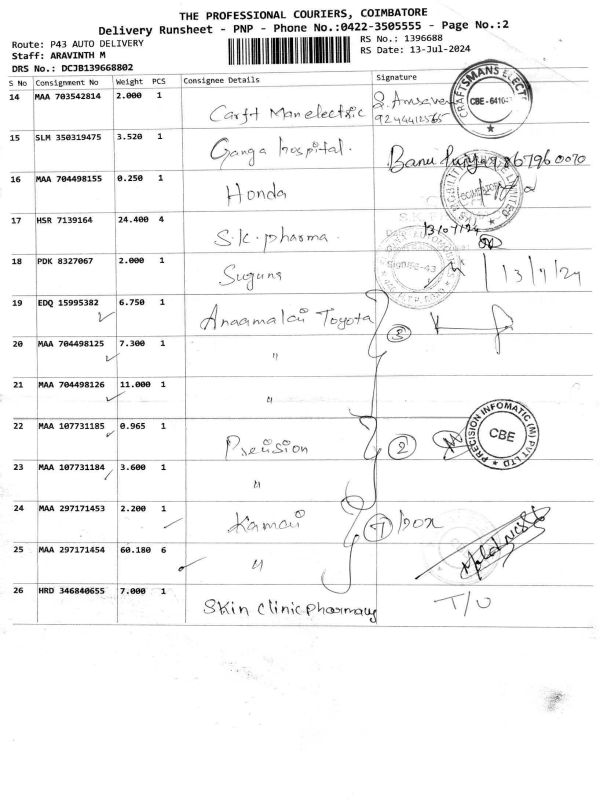 THE PROFESSIONAL COURIERS, COIMBATORE
Delivery Runsheet - PNP - Phone No.:0422-3505555 - Page No.:2
Route: P43 AUTO DELIVERY
RS No.: 1396688
Staff: ARAVINTH M
RS Date: 13-Jul-2024
DRS No.: DCJB139668802
S No Consignment No Weight PCS Consignee Details Signature
14 MAA 703542814 2.000 1 Carft Man electric
9244412565
CRAFTSMANS ELECT
CBE - 6410
15 SLM 350319475 3.520 1 Ganga hospital. Banu
16 MAA 704498155 0.250 1 Honda
17 HSR 7139164 24.400 4 S.K. pharma 13/07/24
18 PDK 8327067 2.000 1 Suguna 13/7/24
19 EDQ 15995382 6.750 1 Anaamalai Toyota 3
20 MAA 704498125 7.300 1 "
21 MAA 704498126 11.000 1 "
22 MAA 107731185 0.965 1 Precision 2
PRECISION INFOMATIC (M) PVT LTD
CBE
23 MAA 107731184 3.600 1 "
24 MAA 297171453 2.200 1 7 box
25 MAA 297171454 60.180 6 "
26 HRD 346840655 7.000 1 Skin clinic pharmacy